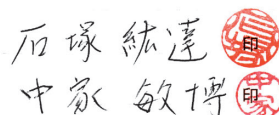 石塚 紘達 印
中家 敏博 印